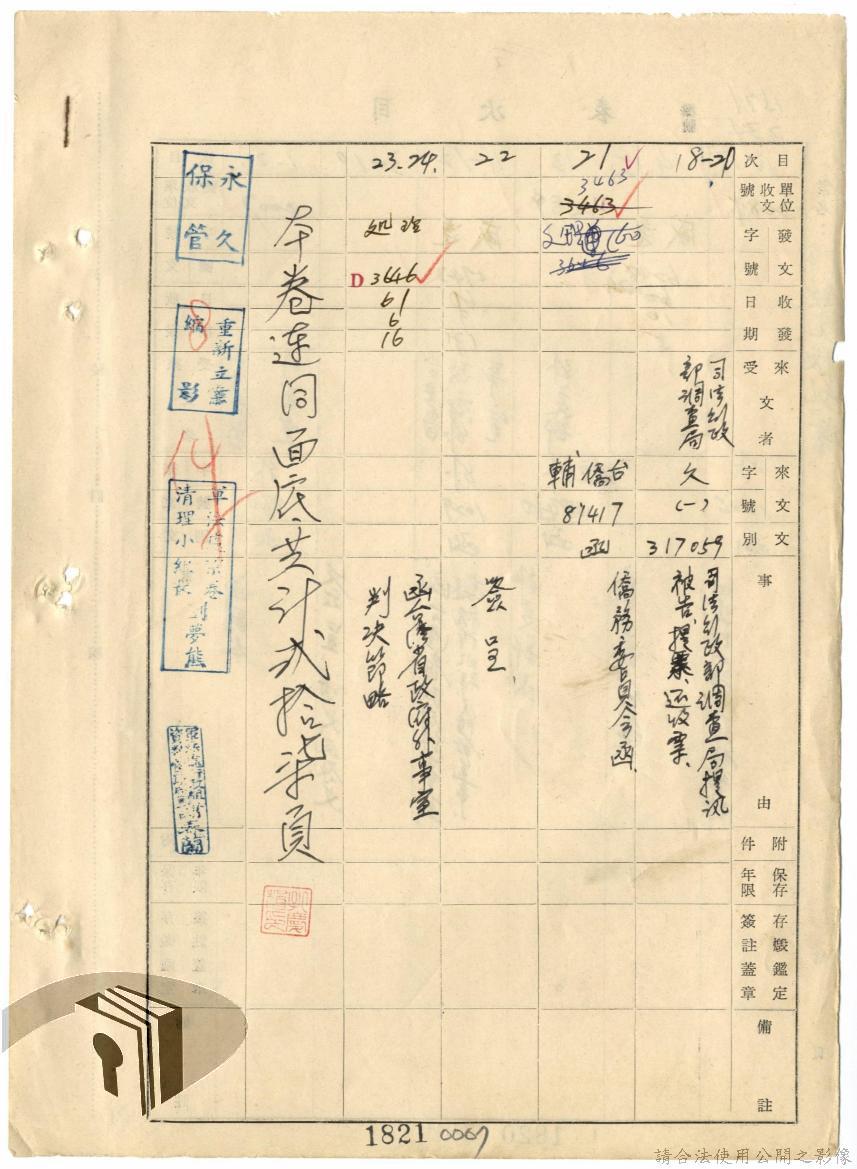 目次
單位收文號
發文字號
收發日期
來文者
受
來文字號
文別
事由
附件
保存年限
存燬鑑定
簽註蓋章
備註
18-20
司法行政部調查局
久
(一)
317059
司法行政部調查局提訊
被告提票、还收票、
21
3463
3463
3646
台僑輔
87417
函
僑務委員会函
22
簽呈
23.24.
处理
D 3646
61
6
16
函台灣省政府外事室
判决節略
本卷連同面底共計弍拾柒頁
永久保管
8
重新立案
縮影
14
清理小組長
劉夢熊
1821
0067
請合法使用公開之影像